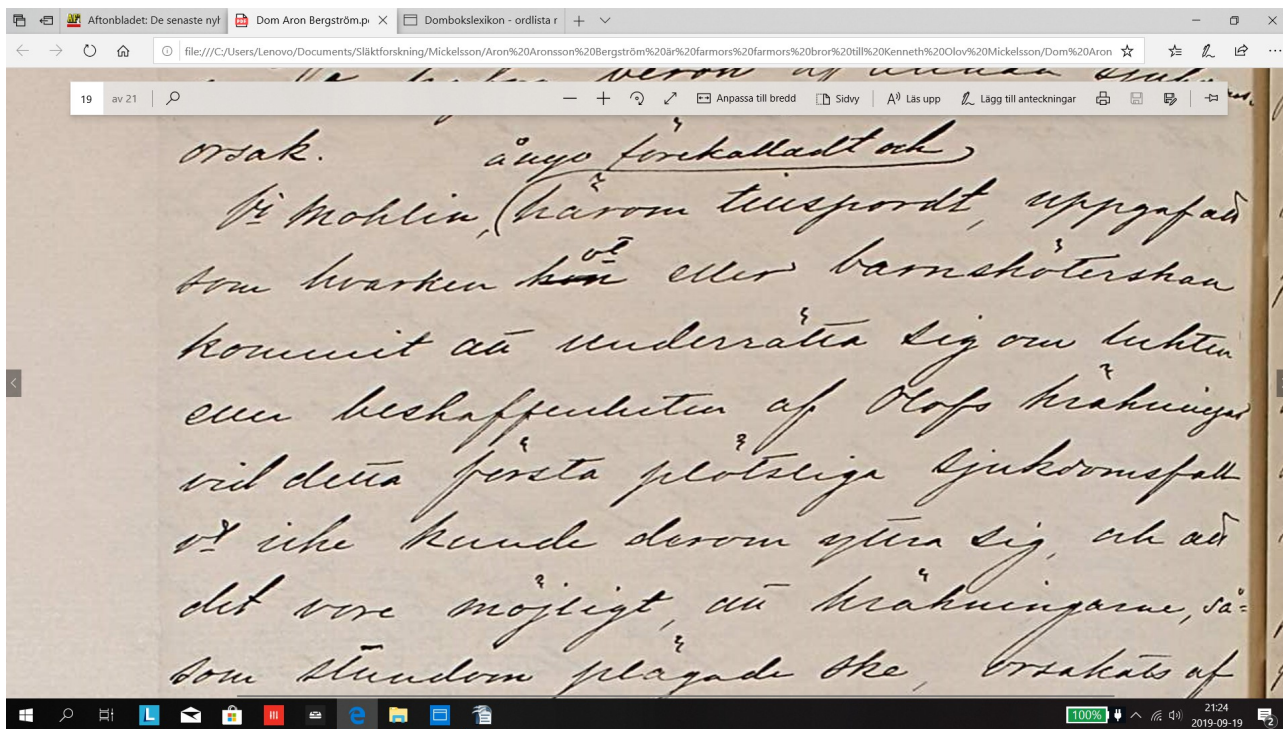 Aftonbladet: De senaste nyh
Dom Aron Bergström.p
Dombokslexikon - ordlista r
file:///C:/Users/Lenovo/Documents/Släktforskning/Mickelsson/Aron%20Aronsson%20Bergström%20är%20farmors%20farmors%20bror%20till%20Kenneth%20Olov%20Mickelsson/Dom%20Aron
beron af annan
19 av 21 Anpassa till bredd Sidvy Läs upp Lägg till anteckningar
orsak. ånyo förekalladt och
Mohlin, härom tillspordt, uppgaf att
som hvarken vt eller barnsköterskan
kommit att underrätta sig om lukten
eller beskaffenheten af Olofs kräkningar
vid detta första plötsliga sjukdomsfall
vt icke kunde derom yttra sig, och att
det vore möjligt, att kräkningarne, så=
som stundom plägade ske, orsakats af
100%
21:24
2019-09-19
2